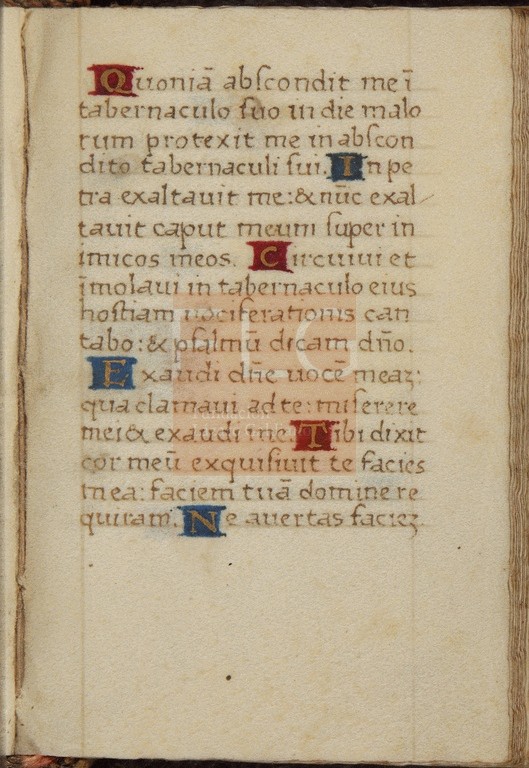 Quoniā abscondit me ī
tabernaculo suo in die malo
rum protexit me in abscon
dito tabernaculi sui. In pe
tra exaltauit me: & nūc exal
tauit caput meum super in
imicos meos. Circuiui et
īmolaui in tabernaculo eius
hostiam uociferationis can
tabo: & psalmū dicam dn̄o.
Exaudi dn̄e uocē meaz:
qua clamaui ad te: miserere
mei & exaudi me. Tibi dixit
cor meū exquisiuit te facies
mea: faciem tuā domine re
quiram. Ne auertas faciez